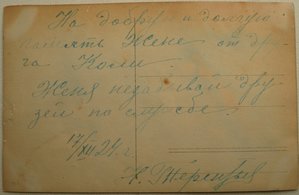 На добрую и долгую
память Жене от дру-
га Коли.
Женя незабывай дру
зей по службе.
17/XII 24 г.